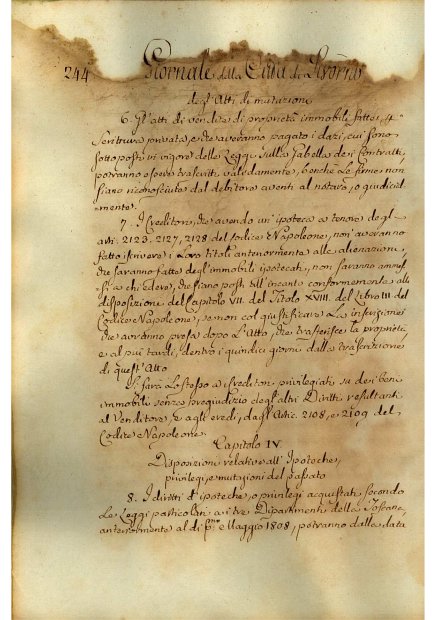 244 Giornale della Città di Livorno
degl'Atti di mutazioni
6. Gl'atti di vendite di proprietà immobili fatte, per
Scrittura privata, e che averanno pagato i dazi, cui sono
sottoposti in vigore delle Leggi sulla Gabella dei Contratti,
potranno essere trascritti validamente, benchè le firme non
siano riconosciute dal debitore avanti al notaro, o giudicial
=mente.
7. I Creditori, che avendo un'ipoteca a tenore degl=
arti. 2123. 2127, 2128 del Codice Napoleone, non averanno
fatto iscrivere i Loro titoli anteriormente alle alienazioni,
che saranno fatte degl'immobili ipotecati, non saranno ammes
=si a chiedere, che siano posti all'incanto conformemente alle
disposizione del Capitolo VII. del Titolo XVIII. del Libro III del
Codice Napoleone, se non col giustificare La inscrizione
che avranno presa dopo L'Atto, che trasferisce la proprietà,
e al più tardi, dentro i quindici giorni dalla trascrizione
di quest'Atto
Si farà Lo stesso ai Creditori privilegiati su dei beni
immobili senza pregiudizio degl'altri Diritti resultanti
al Venditore, e agli eredi, dagl'Artic. 2108, e 2109 del
Codice Napoleone.
Capitolo IV
Disposizioni relative all'Ipoteche,
privilegi, e mutazioni del passato
8. I diritti d'ipoteche, o privilegi acquistati secondo
Le Leggi particolari ai tre Dipartimenti della Toscana,
anteriormente al dì pmo. Maggio 1808, potranno dalla data